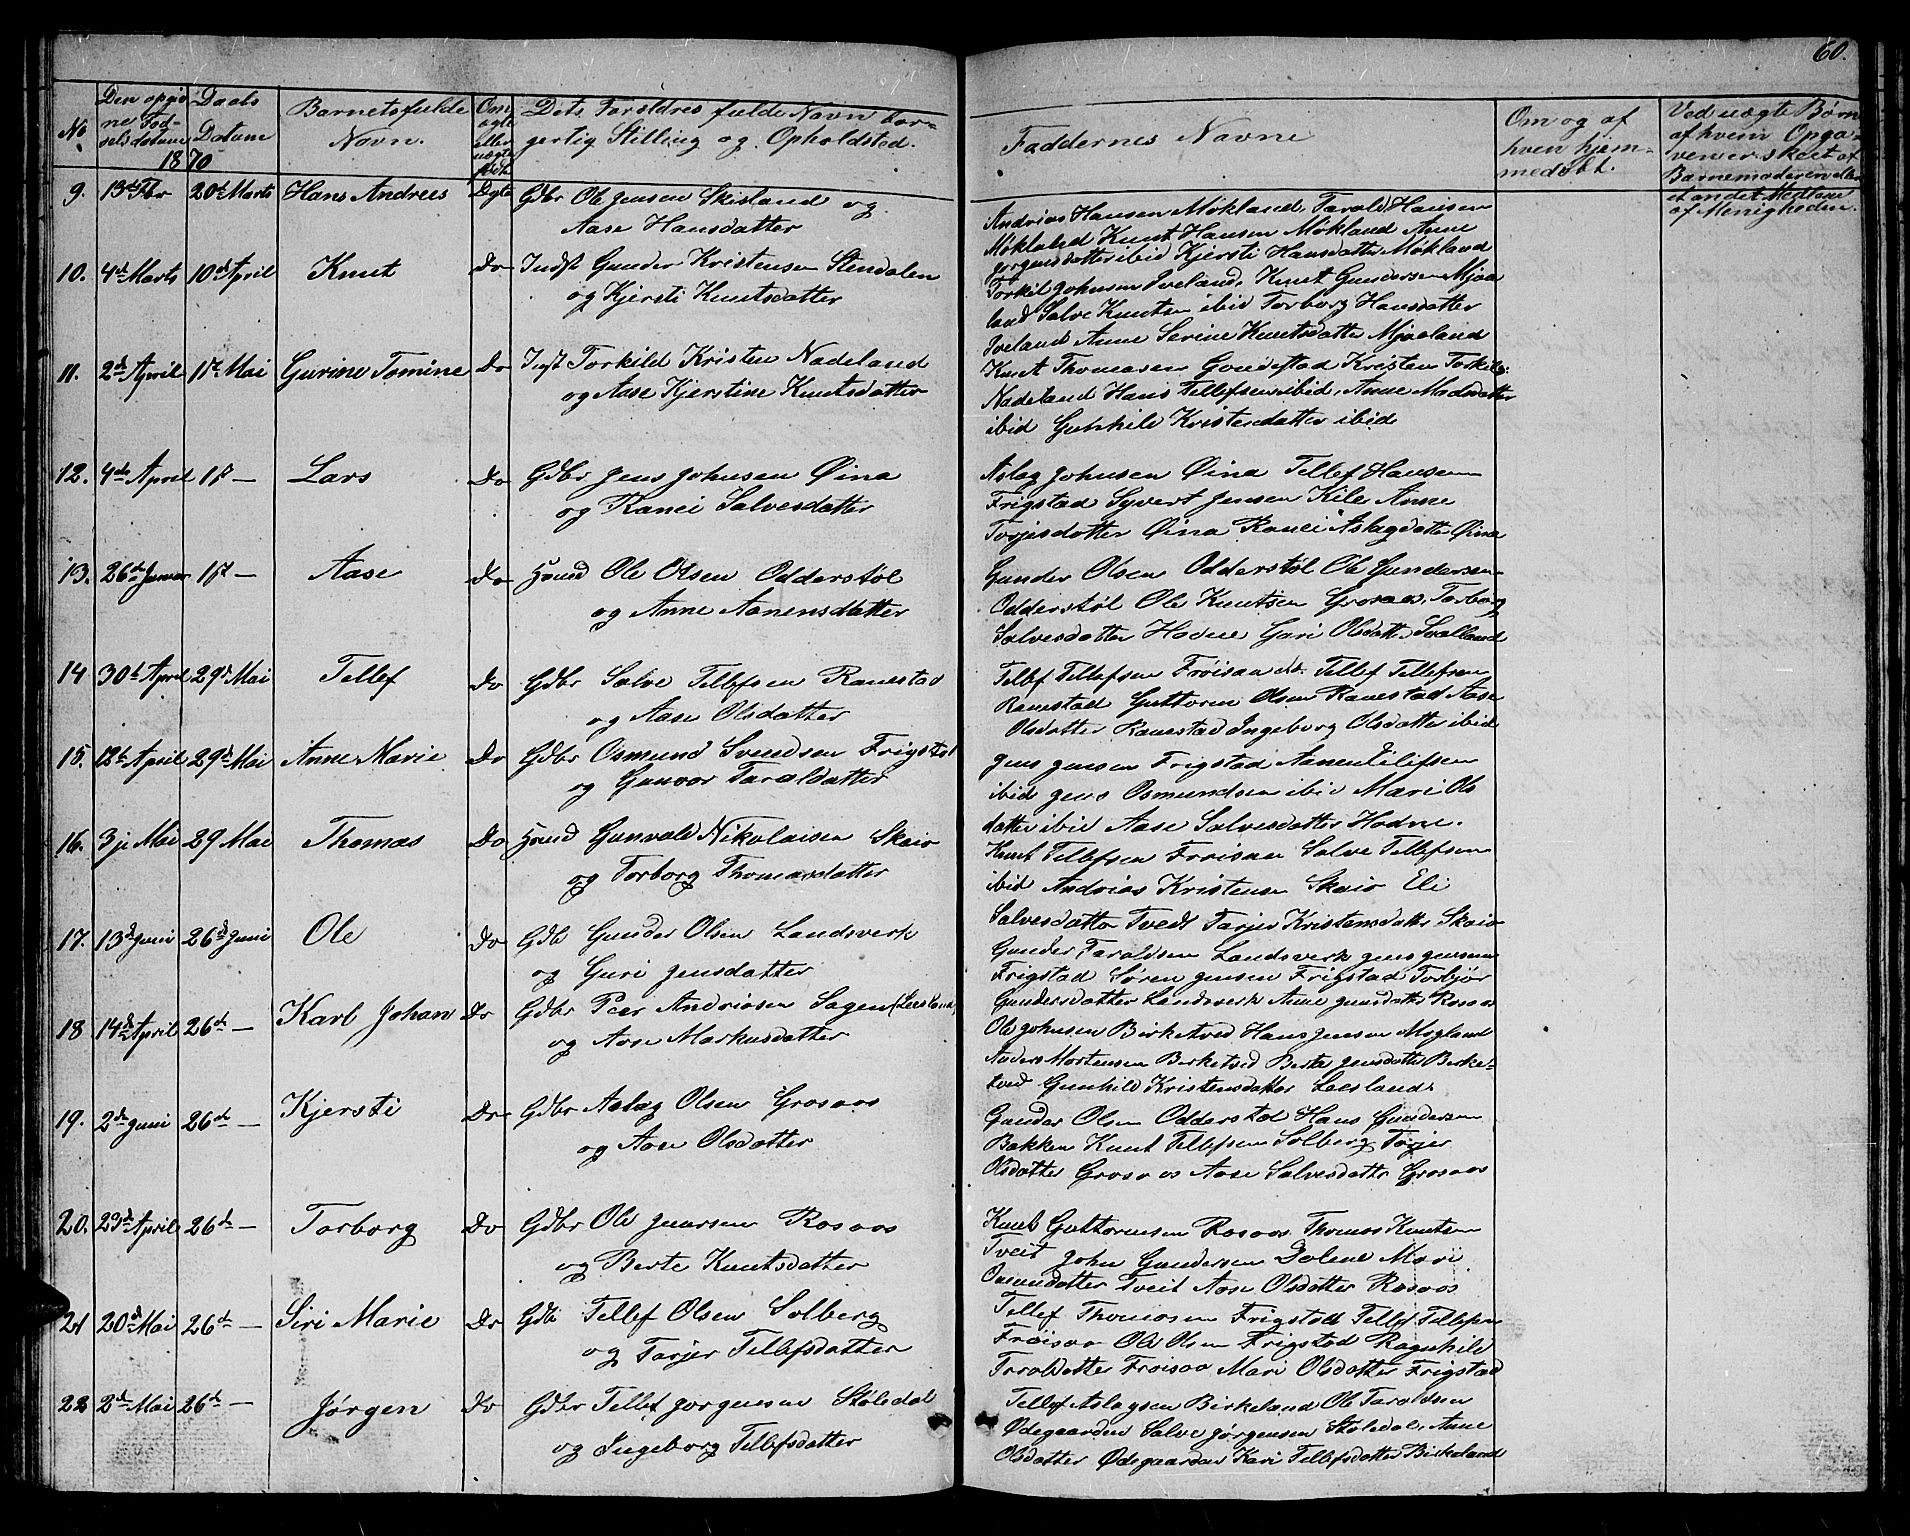 60.
No
Den opgiv
ne Fød-
selsdatum
Daabs
Datum
1870
Barnetsfulde
Navn.
Om
ægte
eller
uægte
født
Dets Forældres fulde Navn bor-
gerlig Stilling og Opholdsted.
Faddernes Navne
Om og af
hvem hjem-
medøbt.
Ved uægte Børn
af hvem Opga-
ven er skeet af
Barnemoderen eller
et andet Medlem
af Menigheden.
9. 13de Fbr 20de Marts Hans Andreas Ægte Gdbr Ole Jensen Skisland og
Aase Hansdatter
Andrias Hansen Møkland, Tarald Hansen
Møkland Knut Hansen Møkland Anne
Jørgensdatter ibid Kjersti Hansdatter Møkland
10. 4de Marts 10de April Knut Do Indst Gunder Kristensen Stendalen
og Kjersti Knutsdatter
Torkil Johnsen Iveland, Knut Gundersen Mjaa
land Salve Knutsen ibid Torborg Hansdatter
Iveland Anne Serine Knutsdatter Mjaaland
11. 2de April 1ste Mai Gurine Tomine Do Inst Torkild Kristen Nadeland
og Aase Kjerstine Knutsdatter
Knut Thomasen Kristen Torkils:
Nadeland Hans Tellefsen ibid, Anne Madsdatter
ibid Gunhild Kristensdatter ibid
12. 4de April 1ste — Lars Do Gdbr Jens Johnsen Øina
og Ranei Salvesdatter
Aslag Johnsen Øina Tellef Hansen
Frigstad Syvert Jensen Kile Anne
Torjesdatter Øina Ranei Aslagdatter Øina
13. 26de Januar 1ste — Aase Do Huusd Ole Olsen Odderstøl
og Anne Aanensdatter
Gunder Olsen Odderstøl Ole Gundersen
Odderstøl Ole Knutsen Grosaas, Torborg
Salvesdatter Hodne Guri Olsdatter
14 30de April 29de Mai Tellef Do Gdbr Salve Tellefsen Ranestad
og Aase Olsdatter
Tellef Tellefsen Frøisaa Tellef Tellefsen
Ranestad Guttorm Olsen Ranestad Aase
Olsdatter Ranestad Ingeborg Olsdatter ibid
15. 12te April 29de Mai Anne Marie Do Gdbr Osmund Svendsen Frigstad
og Gunvor Taraldatter
Jens Jensen Frigstad Aanen
ibid Jens Osmundsen ibid Mari Ols
datter ibid Aase Salvesdatter Hodne.
16. 3je Mai 29 Mai Thomas Do Huusd Gunvald Nikolaisen Skaio
og Torborg Thomasdatter
Knut Tellefsen Frøisaa Salve Tellefsen
ibid Andrias Kristensen Skaio Eli
Salvesdatter Tvedt Tarjer Kristensdatter Skaio
17. 13de Juni 26de Juni Ole Do Gdb Gunder Olsen Landsverk
og Guri Jensdatter
Gunder Taraldsen Landsverk Jens Jensen
Frigstad Søren Jensen Frigstad Torbjør
Gundersdatter Landsverk Anne Jensdatter Rosaas
18 14de April 26de — Karl Johan Do Gdbr Peer Andriasen Sagen (Leesland)
og Aase Markusdatter
Ole Johnsen Birketved Hans Jensen Mogland
Anders Mortensen Birketved Berte Jensdatter Birke-
tved Gunhild Kristensdatter Leesland
19. 2de Juni 26de — Kjersti Do Gdbr Aslag Olsen Grosaas
og Aase Olsdatter
Gunder Olsen Odderstøl Hans Gundersen
Bakken Knut Tellefsen Solberg Torjer
Olsdatter Grosaas Aase Salvesdatter Grosaas
20. 23de April 26de — Torborg Do Gdbr Ole Rosaas
og Berte Knutsdatter
Knut Guttormsen Rosaas Thomas Knutsen
Tveit John Gundersen Dalene Mari
Osmundatter Tveit Aase Olsdatter Rosaas
21 20de Mai 26de — Siri Marie Do Gdb Tellef Olsen Solberg
og Torjer Tellefsdatter
Tellef Thomasen Frigstad Tellef Tellefsen
Frøisaa Ole Olsen Frigstad Ragnhild
Taraldatter Frøisaa Mari Olsdatter Frigstad
22 2de Mai 26de — Jørgen Do Gdbr Tellef Jørgensen Støledal
og Ingeborg Tellefsdatter
Tellef Aslagsen Birkeland Ole Taraldsen
Ødegaarden Salve Jørgensen Støledal, Anne
Olsdatter Ødegaarden Kari Tellefsdatter Birkeland